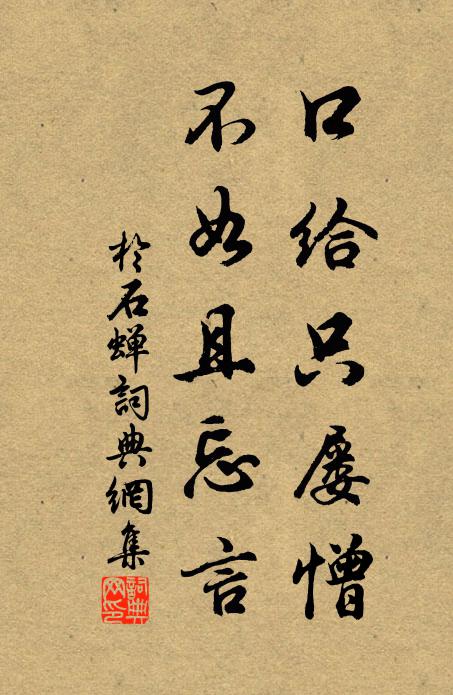 口给只屡憎
不如且忘言
於石蝉詞典網集
詞典
网印